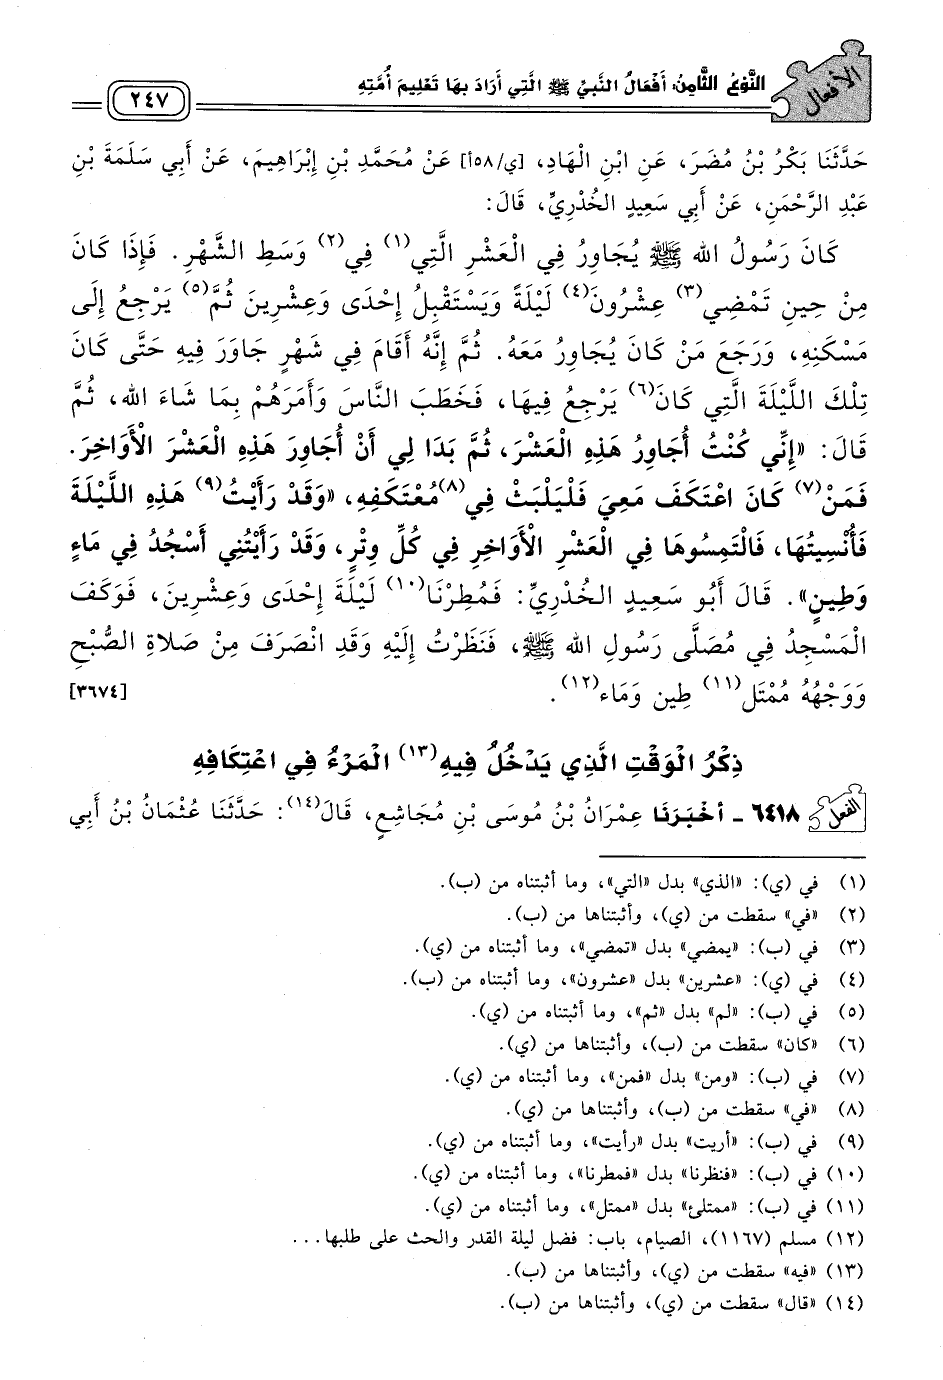 الأفعال
النَّوْعُ الثَّامِنُ: أَفْعَالُ النَّبِيِّ ﷺ الَّتِي أَرَادَ بِهَا تَعْلِيمَ أُمَّتِهِ
٢٤٧
حَدَّثَنَا بَكْرُ بْنُ مُضَرَ، عَنِ ابْنِ الْهَادِ، [ي/٥٨أ] عَنْ مُحَمَّدِ بْنِ إِبْرَاهِيمَ، عَنْ أَبِي سَلَمَةَ بْنِ
عَبْدِ الرَّحْمَنِ، عَنْ أَبِي سَعِيدٍ الْخُدْرِيِّ، قَالَ:
كَانَ رَسُولُ اللهِ ﷺ يُجَاوِرُ فِي الْعَشْرِ الَّتِي(١) فِي(٢) وَسَطِ الشَّهْرِ. فَإِذَا كَانَ
مِنْ حِينِ تَمْضِي(٣) عِشْرُونَ(٤) لَيْلَةً وَيَسْتَقْبِلُ إِحْدَى وَعِشْرِينَ ثُمَّ(٥) يَرْجِعُ إِلَى
مَسْكَنِهِ، وَرَجَعَ مَنْ كَانَ يُجَاوِرُ مَعَهُ. ثُمَّ إِنَّهُ أَقَامَ فِي شَهْرٍ جَاوَرَ فِيهِ حَتَّى كَانَ
تِلْكَ اللَّيْلَةَ الَّتِي كَانَ(٦) يَرْجِعُ فِيهَا، فَخَطَبَ النَّاسَ وَأَمَرَهُمْ بِمَا شَاءَ الله، ثُمَّ
قَالَ: «إِنِّي كُنْتُ أُجَاوِرُ هَذِهِ الْعَشْرَ، ثُمَّ بَدَا لِي أَنْ أُجَاوِرَ هَذِهِ الْعَشْرَ الْأَوَاخِرَ.
فَمَنْ(٧) كَانَ اعْتَكَفَ مَعِيَ فَلْيَلْبَثْ فِي(٨) مُعْتَكَفِهِ، «وَقَدْ رَأَيْتُ(٩) هَذِهِ اللَّيْلَةَ
فَأُنْسِيتُهَا، فَالْتَمِسُوهَا فِي الْعَشْرِ الْأَوَاخِرِ فِي كُلِّ وِتْرٍ، وَقَدْ رَأَيْتُنِي أَسْجُدُ فِي مَاءٍ
وَطِينٍ». قَالَ أَبُو سَعِيدٍ الْخُدْرِيِّ: فَمُطِرْنَا(١٠) لَيْلَةَ إِحْدَى وَعِشْرِينَ، فَوَكَفَ
الْمَسْجِدُ فِي مُصَلَّى رَسُولِ اللهِ ﷺ، فَنَظَرْتُ إِلَيْهِ وَقَدِ انْصَرَفَ مِنْ صَلَاةِ الصُّبْحِ
وَوَجْهُهُ مُمْتَلٍ(١١) طِينٍ وَمَاء(١٢). [٣٦٧٤]
ذِكْرُ الْوَقْتِ الَّذِي يَدْخُلُ فِيهِ(١٣) الْمَرْءُ فِي اعْتِكَافِهِ
الفعل ٦٤١٨ - أَخْبَرَنَا عِمْرَانُ بْنُ مُوسَى بْنِ مُجَاشِعٍ، قَالَ(١٤): حَدَّثَنَا عُثْمَانُ بْنُ أَبِي
(١) في (ي): «الذي» بدل «التي»، وما أثبتناه من (ب).
(٢) «في» سقطت من (ي)، وأثبتناها من (ب).
(٣) في (ب): «يمضي» بدل «تمضي»، وما أثبتناه من (ي).
(٤) في (ي): «عشرين» بدل «عشرون»، وما أثبتناه من (ب).
(٥) في (ب): «لم» بدل «ثم»، وما أثبتناه من (ي).
(٦) «كان» سقطت من (ب)، وأثبتناها من (ي).
(٧) في (ب): «ومن» بدل «فمن»، وما أثبتناه من (ي).
(٨) «في» سقطت من (ب)، وأثبتناها من (ي).
(٩) في (ب): «أريت» بدل «رأيت»، وما أثبتناه من (ي).
(١٠) في (ب): «فنظرنا» بدل «فمطرنا»، وما أثبتناه من (ي).
(١١) في (ب): «ممتلئ» بدل «ممتل»، وما أثبتناه من (ي).
(١٢) مسلم (١١٦٧)، الصيام، باب: فضل ليلة القدر والحث على طلبها...
(١٣) «فيه» سقطت من (ي)، وأثبتناها من (ب).
(١٤) «قال» سقطت من (ي)، وأثبتناها من (ب).